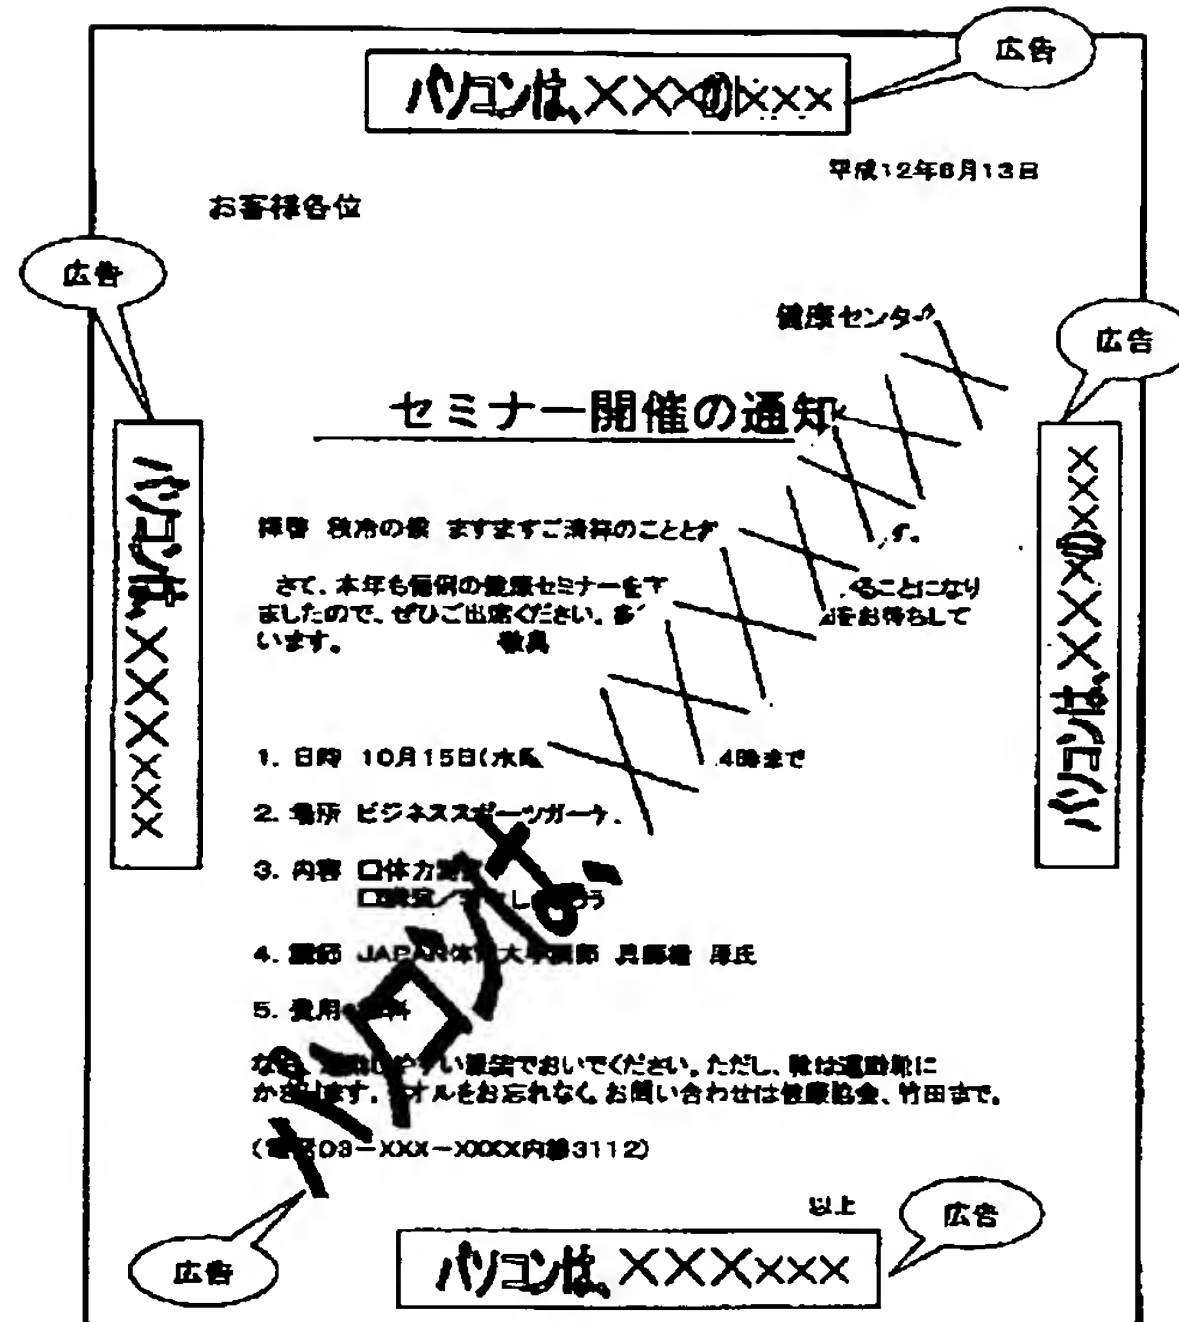 広告
パソコンは、×××の×××
平成12年6月13日
お客様各位
広告
健康センター
広告
セミナー開催の通知
パソコンは、××××××
×××の×××は、パソコン
拝啓 秋冷の候 ますますご清祥のことと す。
さて、本年も恒例の健康セミナーを下 ることになり
ましたので、ぜひご出席ください。多 をお待ちして
います。 敬具
1. 日時 10月15日(水曜 4時まで
2. 場所 ビジネススポーツガーデ
3. 内容 □体力測定
4. 講師 JAPAN体育大学講師
5. 費用 無料
なお、運動しやすい服装でおいでください。ただし、靴は運動靴に
かぎります。タオルをお忘れなく。お問い合わせは健康協会、竹田まで。
(電話03-XXX-XXXX内線3112)
パソコンは、
以上
広告
広告
パソコンは、××××××